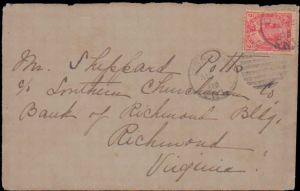 Mr. Sheppard Potts
c/o Southern Churchman Co
Bank of Richmond Bldg,
Richmond
Virginia.